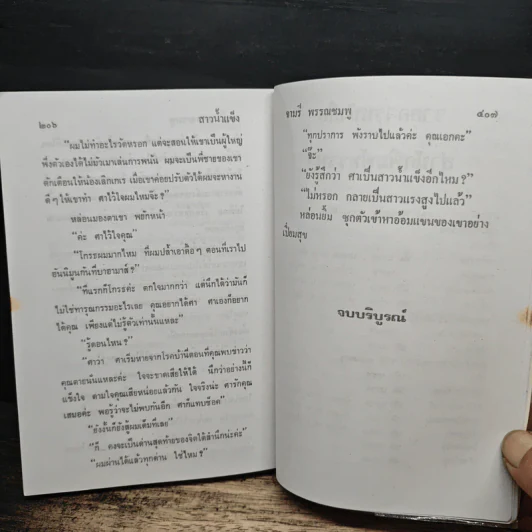 ๒๐๖ สาวน้ำแข็ง
"ผมไม่ทำอะไรวัดหรอก แต่จะสอนให้เขาเป็นผู้ใหญ่
พึ่งตัวเองได้ไม่มัวเมาเล่นการพนัน ผมจะเป็นพี่ชายของเขา
ตักเตือนให้น้องเลิกเกเร เมื่อเขาค่อยปรับตัวได้ผมจะหางาน
ดีๆให้เขาทำ ศาไว้ใจผมไหมจ๊ะ?"
หล่อนมองตาเขา พยักหน้า
"ค่ะ ศาไว้ใจคุณ"
"โกรธผมมากไหม ที่ผมปล้ำเอาดื้อๆ ตอนที่เราไป
ฮันนีมูนกันที่บาฮามาส์?"
"ทีแรกก็โกรธค่ะ ตกใจมากกว่า แต่นึกได้ว่ามันก็
ไม่ใช่ทารุณกรรมอะไรเลย คุณอยากได้ศา ศาเองก็อยาก
ได้คุณ เพียงแต่ไม่รู้ตัวเท่านั้นแหละ"
"รู้ตอนไหน?"
"ศาว่า ศาเริ่มหายจากโรคบ้านี่ตอนที่คุณพบข่าวว่า
คุณตายนั่นแหละค่ะ ใจจะขาดเสียให้ได้ นึกว่าอย่างนี้ก็
แข็งใจ ตามใจคุณเสียหน่อยแล้วกัน ใจจริงน่ะ ศารักคุณ
เสมอค่ะ พอรู้ว่าจะไม่พบกันอีก ศาก็แทบช็อค"
"ยังงั้นก็ยังสู้ผมเต็มที่เลย"
"ก็ คงจะเป็นด่านสุดท้ายของจิตใต้สำนึกน่ะค่ะ"
"ผมผ่านได้แล้วทุกด่าน ใช่ไหม?"
จามรี พรรณชมพู ๔๐๗
"ทุกปราการ พังราบไปแล้วค่ะ คุณเอกคะ"
"จ๊ะ"
"ยังรู้สึกว่า ศาเป็นสาวน้ำแข็งอีกไหม?"
"ไม่หรอก กลายเป็นสาวแรงสูงไปแล้ว"
หล่อนยิ้ม ซุกตัวเข้าหาอ้อมแขนของเขาอย่าง
เปี่ยมสุข
จบบริบูรณ์